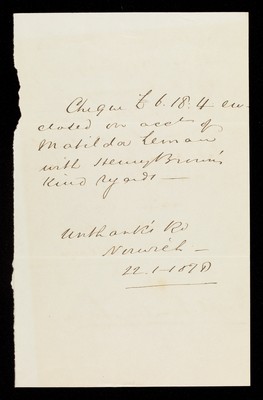 Cheque £ 6. 18. 4 en-
closed on acct of
Matilda Leman
with Henry Brown's
Kind regards —
Unthank's Rd
Norwich —
22. 1 - 1878